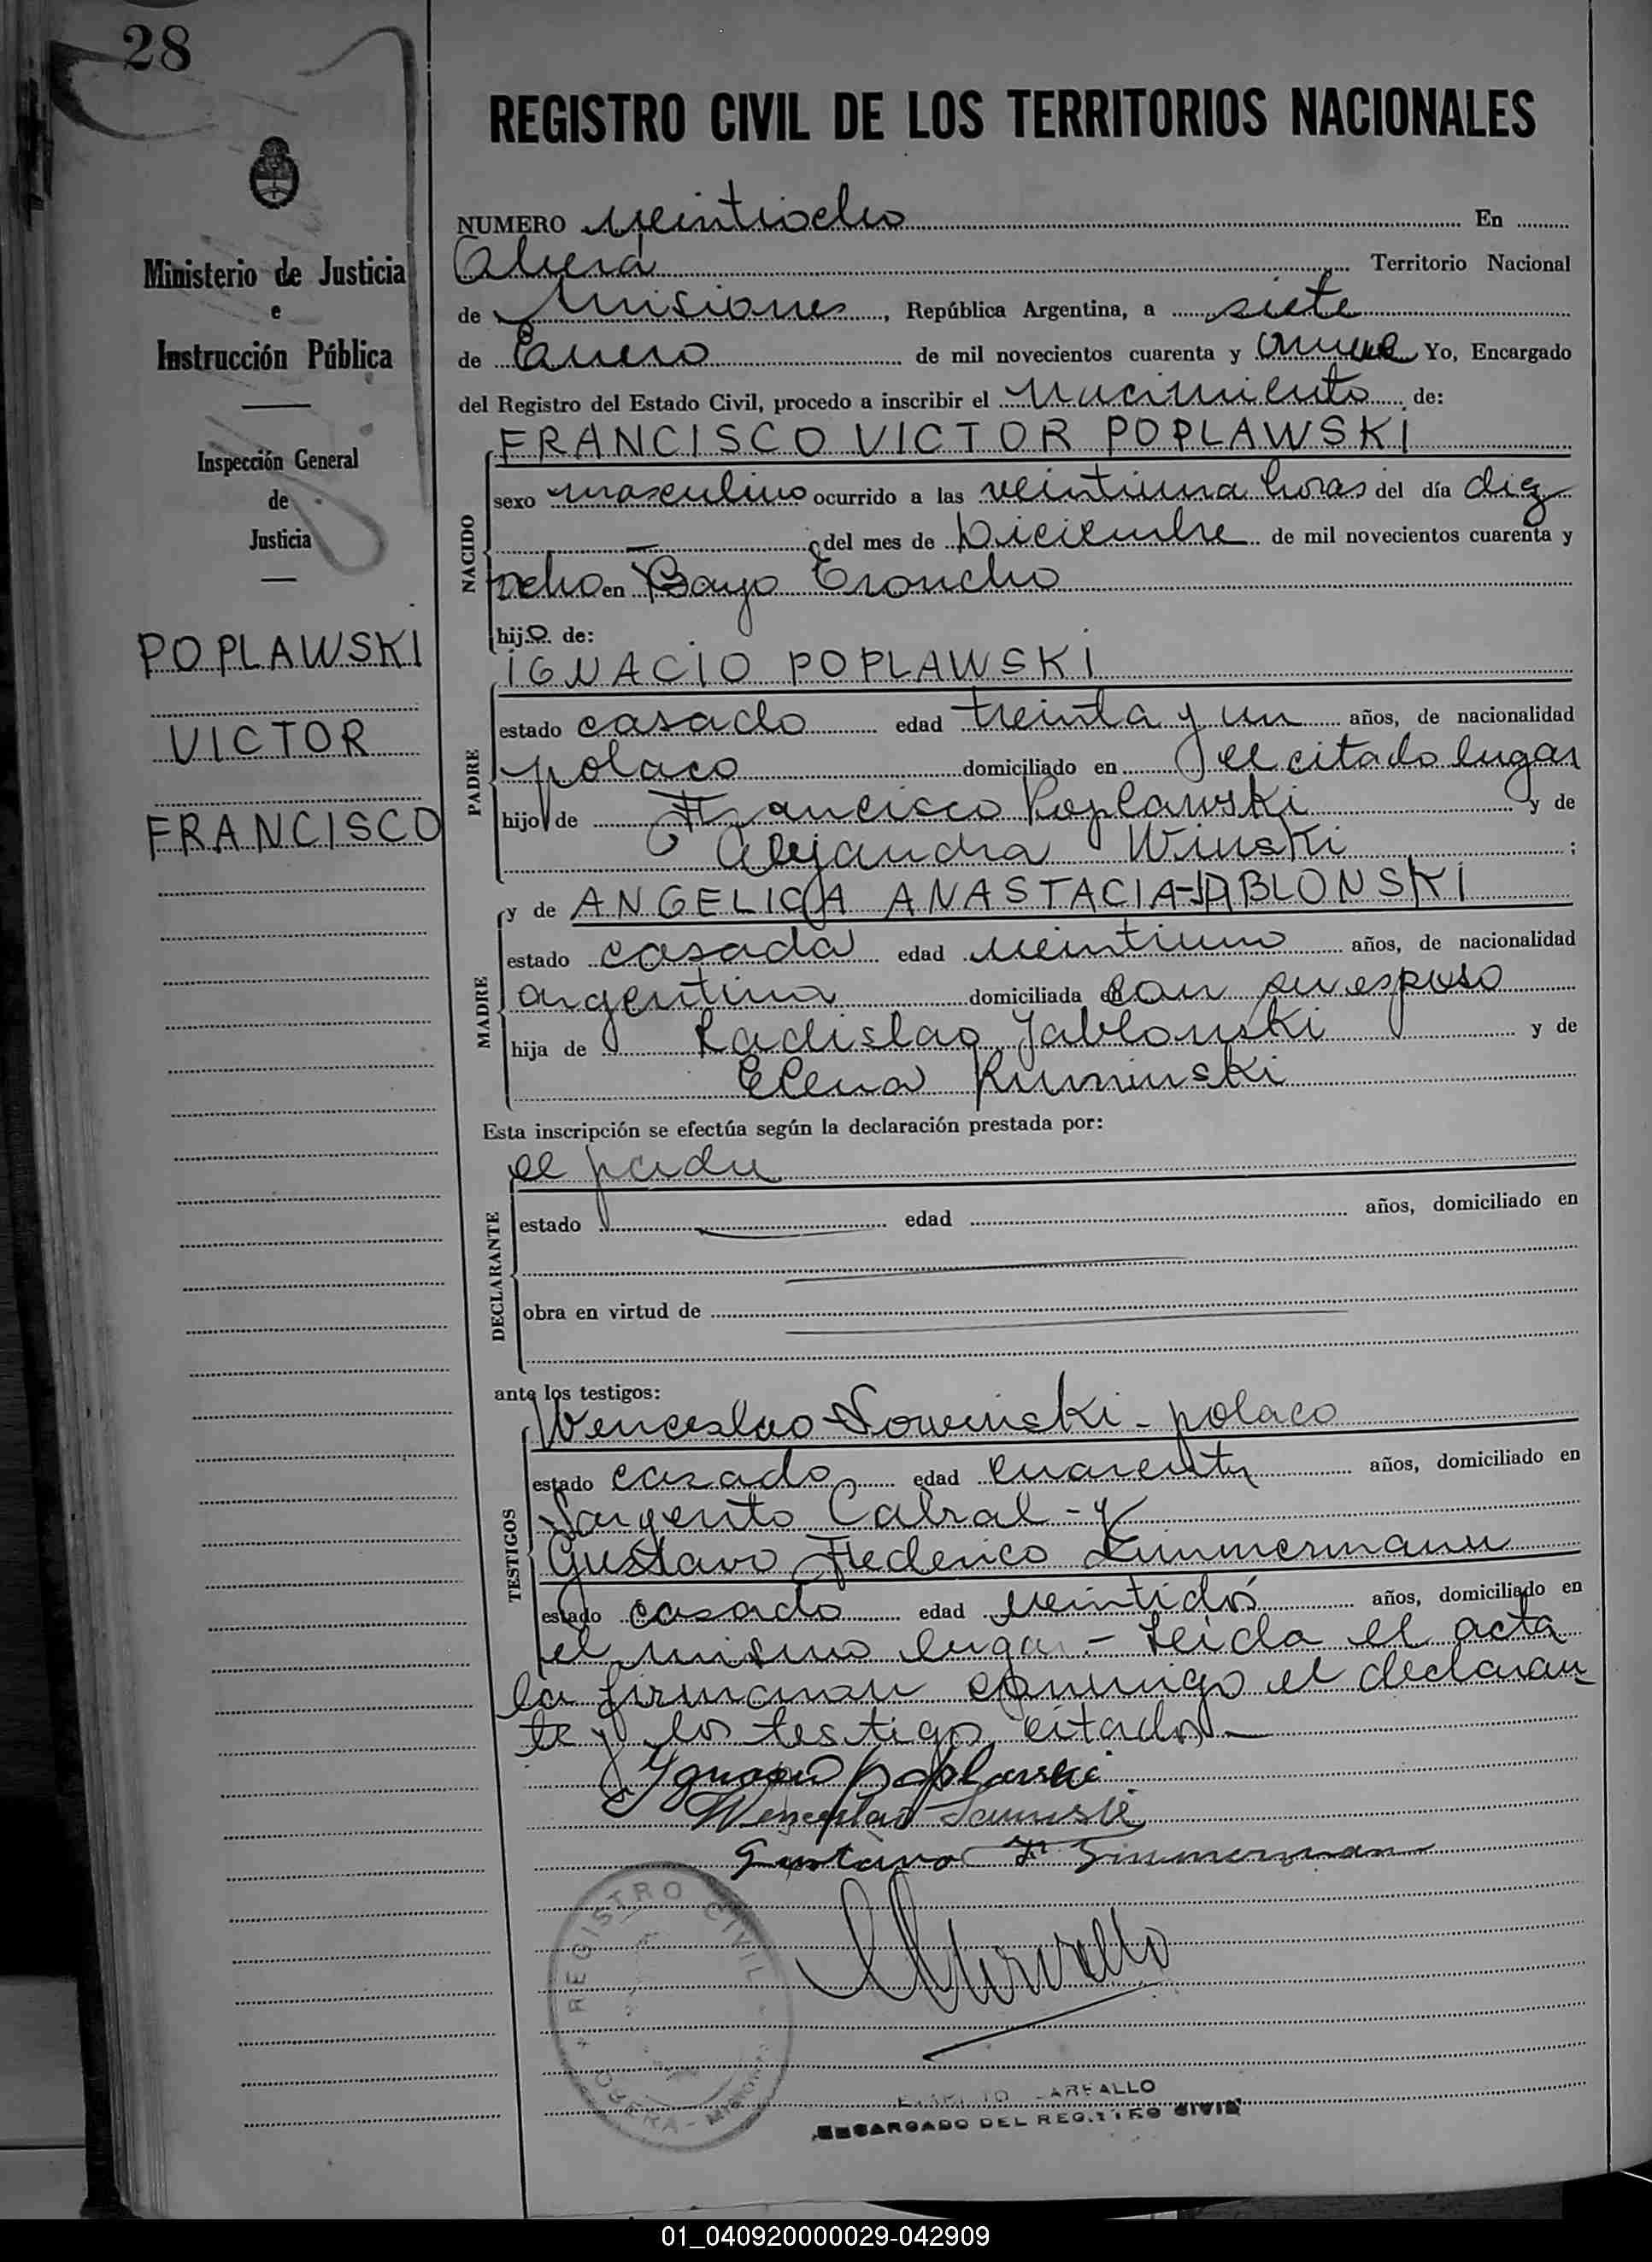 28
REGISTRO CIVIL DE LOS TERRITORIOS NACIONALES
Ministerio de Justicia
e
Instrucción Pública
Inspección General
de
Justicia
POPLAWSKI
VICTOR
FRANCISCO
NUMERO veintiocho En
Oberá Territorio Nacional
de Misiones, República Argentina, a siete
de Enero de mil novecientos cuarenta y nueve Yo, Encargado
del Registro del Estado Civil, procedo a inscribir el nacimiento de:
NACIDO
FRANCISCO VICTOR POPLAWSKI
sexo masculino ocurrido a las veintiuna horas del día diez
del mes de Diciembre de mil novecientos cuarenta y
ocho en Bayo Troncho
hijo de:
PADRE
IGNACIO POPLAWSKI
estado casado edad treinta y un años, de nacionalidad
polaco domiciliado en el citado lugar
hijo de Francisco Poplawski y de
Alejandra Winski ;
MADRE
y de ANGELICA ANASTACIA JABLONSKI
estado casada edad veintiuno años, de nacionalidad
argentina domiciliada con su esposo
hija de Ladislao Jablonski y de
Elena Ruminski
Esta inscripción se efectúa según la declaración prestada por:
DECLARANTE
el padre
estado edad años, domiciliado en
obra en virtud de
ante los testigos:
TESTIGOS
Wenceslao Sowinski - polaco
estado casado edad cuarenta años, domiciliado en
Sargento Cabral - y
Gustavo Federico Zimmermann
estado casado edad veintidós años, domiciliado en
el mismo lugar - Leida el acta
la firmaron conmigo el declaran
te y los testigo citados -
Ygnacio Poplawski
Wenceslao
Gustavo F. Zimmermann
REGISTRO CIVIL
OBERA - MISIONES
CARBALLO
ENCARGADO DEL REGISTRO CIVIL
01_040920000029-042909